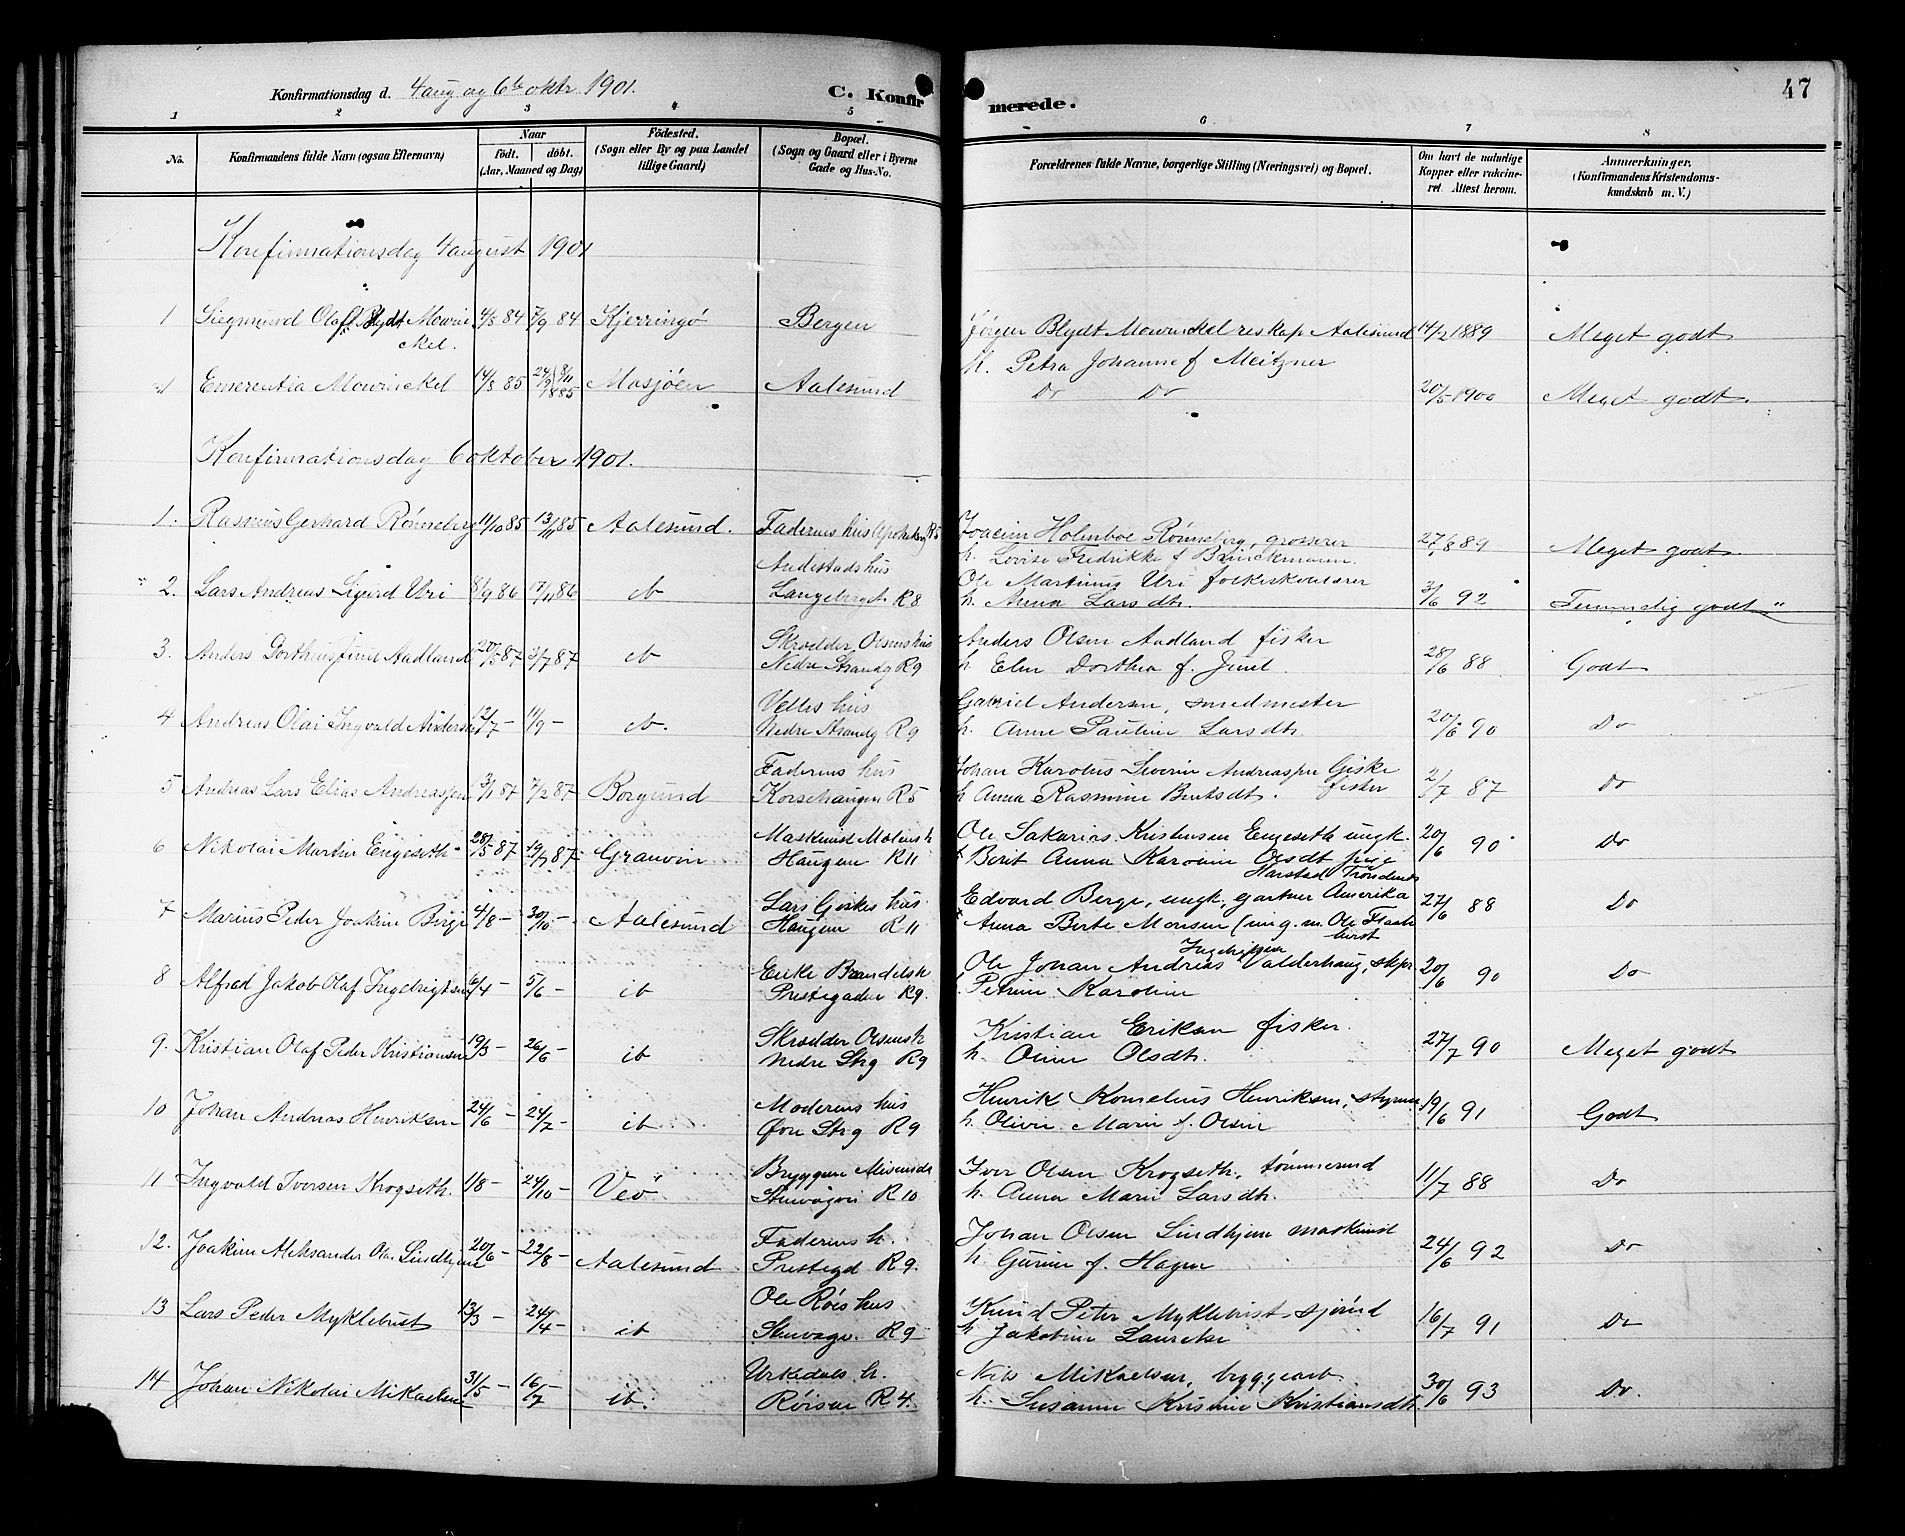 Konfirmationsdag d. 4 aug og 6te oktr. 1901.
C. Konfirmerede.
47
1 2 3 4 5 6 7 8
No.
Konfirmandens fulde Navn (ogsaa Efternavn)
Naar
födt. döbt.
(Aar, Maaned og Dag)
Födested.
(Sogn eller By og paa Landet
tillige Gaard)
Bopæl.
(Sogn og Gaard eller i Byerne
Gade og Hus-No.
Forældrenes fulde Navne, borgerlige Stilling (Næringsvei) og Bopæl.
Om havt de naturlige
Kopper eller vakcine-
ret. Attest herom.
Anmærkninger.
(Konfirmandens Kristendoms-
kundskab m. V.)
Konfirmationsdag 4 august 1901
1 Siegmund Olaf Blydt Mowinckel. 4/8 84 7/9 84 Kjerringö Bergen Jörgen Blydt Mowinckel reskap Aalesund 14/2 1889 Meget godt
h. Petra Johanne f Meitzner
1 Emerentia Mowinckel 14/8 85 Mosjöen Aalesund Do Do 20/5 1900 Meget godt.
Konfirmationsdag 6 oktober 1901.
1. Rasmus Gerhard Rönneberg 11/10 85 13/11 85 Aalesund. Faderens hus (Apotheker) R5 Joacim Holmboe Rønneberg, grosserer 27/8 89 Meget godt.
h. Lovise Fredrikke f Brinckmann.
2. Lars Andreas Sigurd Uri 8/9 86 17/11 86 ib Andestads hus
Langeberget R8 Ole Martinus Uri folkeskolelærer
h. Anna Larsdtr. 3/6 92 Temmelig godt
3. Anders Dortheus Juul Aadland 20/5 87 3/7 87 ib Skrædder Olsens hus
Nedre Strandg R9 Anders Olsen Aadland fisker
h Elen Dorthea f. Juul 28/6 88 Godt
4 Andreas Olai Ingvald Andersen 12/7 - 11/9 - ib. Velles hus
Nedre Strandg R9 Gabriel Andersen, smedmester
h. Anne Pauline Larsdtr. 20/6 90 Do
5 Andreas Lars Elias Andreassen 3/1 87 7/2 87 Borgund Faderens hus
Korsehaugen R5 Johan Karolus Severin Andreassen Giske
fisker
h Anna Rasmine Berntsdtr. 2/7 87 Do
6 Nikolai Martin Engeseth 28/5 87 19/7 87 Granvin Maskinist Molins h
Haugen R11 Ole Sakarias Kristensen Engeseth ungk.
Berit Anna Karoline Olsdtr pige
Harstad Trondenes 20/6 90 Do
7 Marius Peder Joakim Berge 4/8 - 30/10 - Aalesund Lars Giskes hus
Haugen R11 Edvard Berge, ungk, gartner Amerika
Anna Berte Monsen (nu g. m. Ole Flaate
hirst 27/6 88 Do
8 Alfred Jakob Olaf Ingebrigtsen 6/4 - 5/6 - ib Enke Brandals h
Prestegaden R9. Ole Johan Andreas Ingebrigtsen Valderhaug, skpr
Petrine Karoline 20/6 90 Do
9. Kristian Olaf Peder Kristiansen 19/3 - 26/6 - ib Skrædder Olsens h
Nedre Strg R9 Kristian Eriksen fisker.
h. Oline Olsdtr. 27/7 90 Meget godt
10 Johan Andreas Henriksen 24/6 - 24/7 - ib Moderens hus
Øvre Strg R9 Henrik Kornelius Henriksen, styrm
h. Olive Marie f. Olsen 19/6 91 Godt
11 Ingvald Iversen Krogseth. 1/8 - 24/10 - Veö Bryggem Misunds
Stenvaagen R10 Iver Olsen Krogseth, tömmermd
h. Anna Marie Larsdtr. 11/7 88 Do
12. Joakim Aleksander Ole Lindhjem 20/6 - 22/8 - Aalesund Faderens h.
Prestegd R9. Johan Olsen Lindhjem maskinist
h. Gurine f. Hagen 24/6 92 Do
13 Lars Peder Myklebust 13/3 - 24/4 - ib Ole Röis hus
Stenvaage. R9 Knud Peter Myklebust sjömd
h. Jakobine Laurelse 16/7 91 Do
14 Johan Nikolai Mikaelsen 31/5 - 16/7 - ib. Urkedals h.
Röisen R4. Nils Mikaelsen, bryggearb
h. Susanne Kristine Kristiansdtr. 30/6 93 Do.